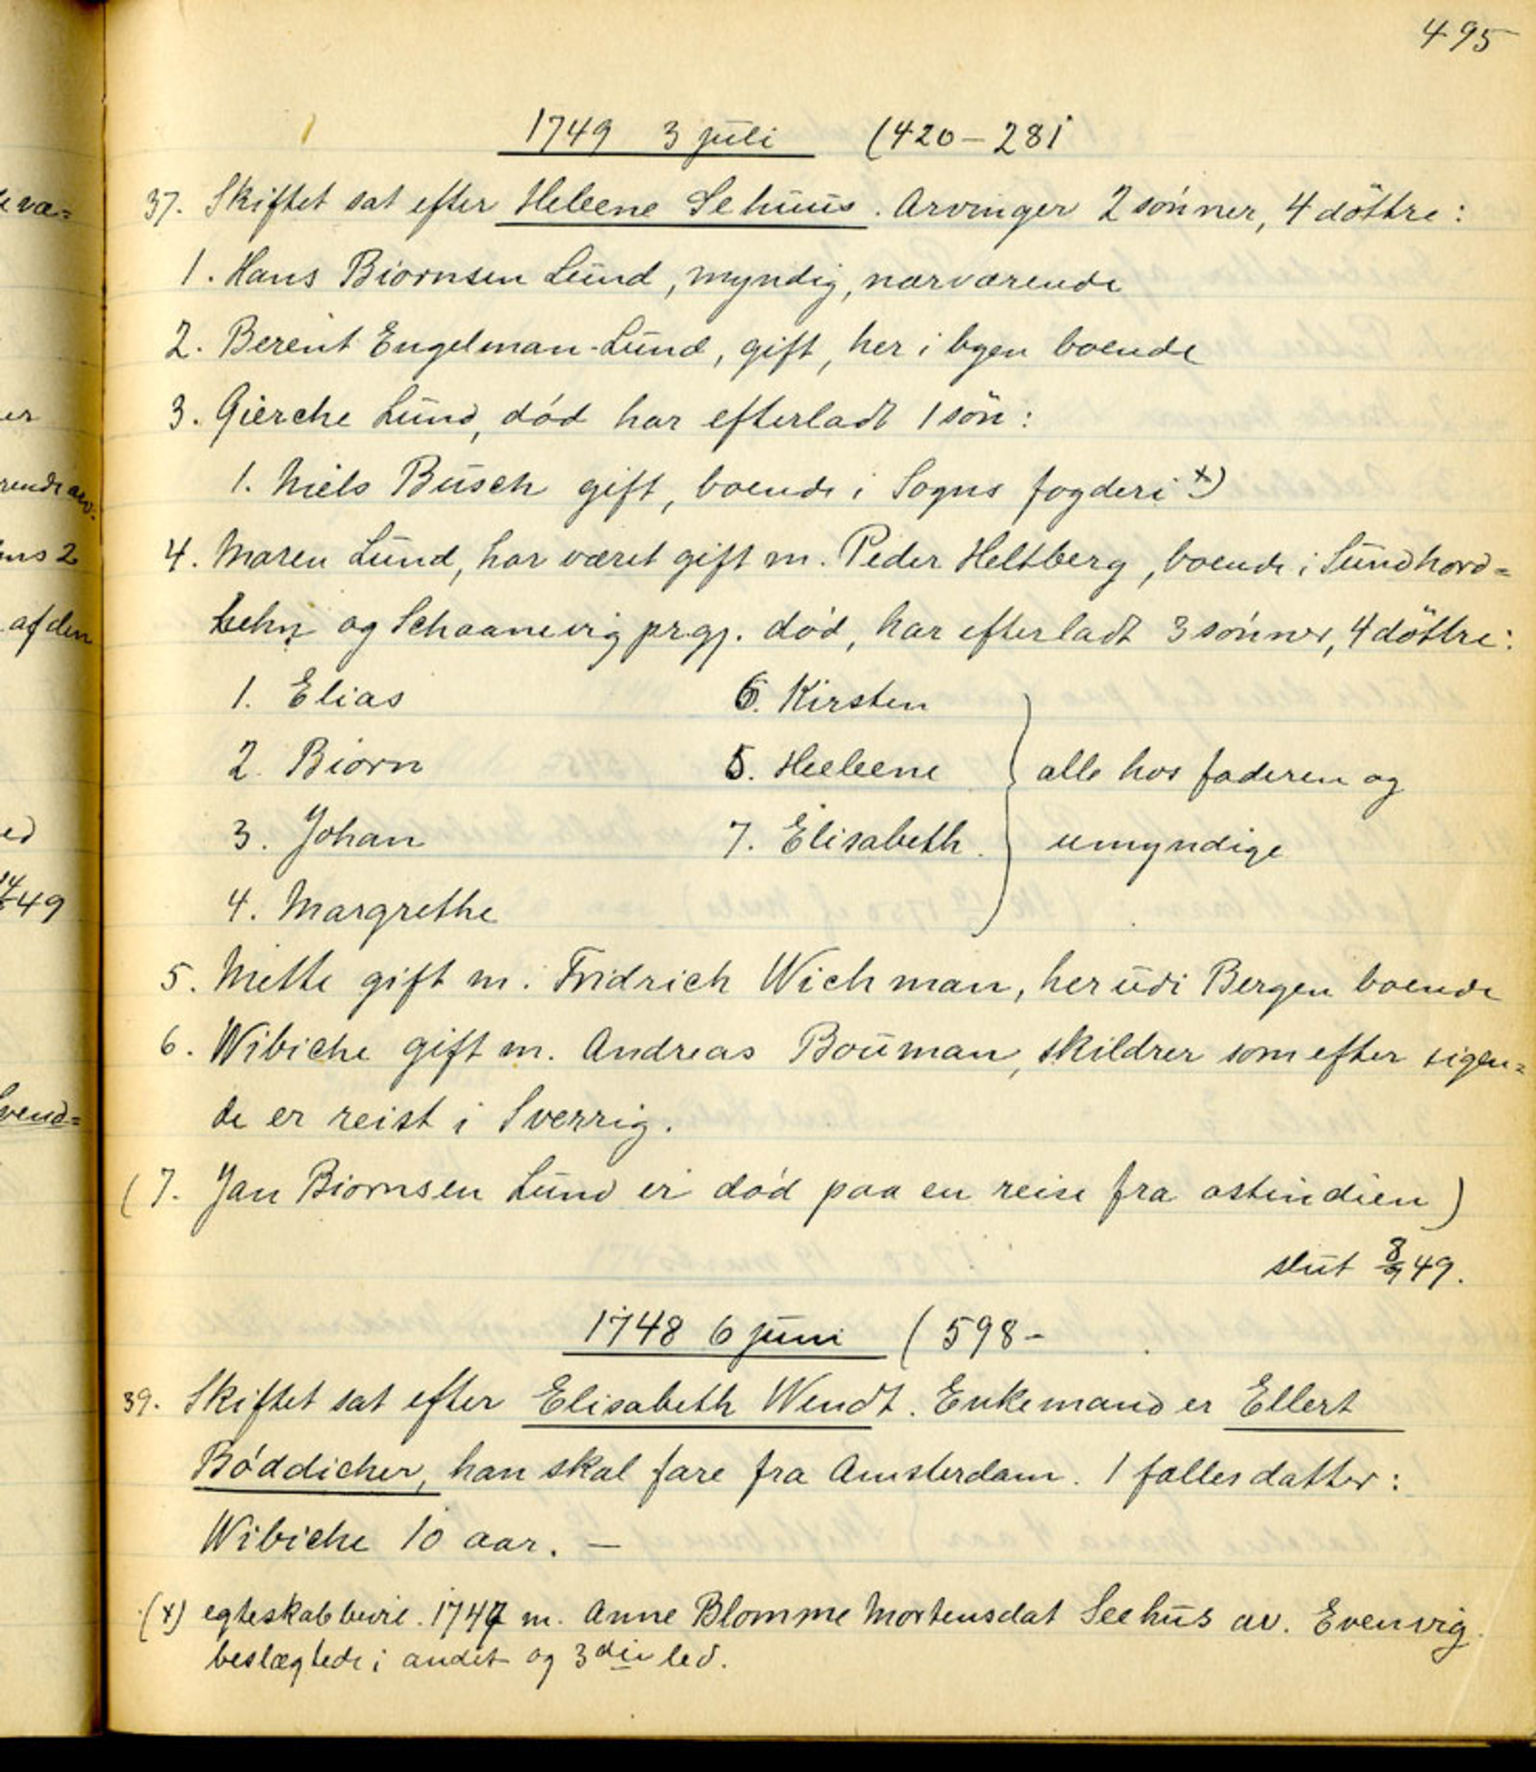 495
1749 3 juli (420-281
37. Skiftet sat efter Heleene Sehuus. Arvinger 2 sønner, 4 döttre:
1. Hans Biørnsen Lund, myndig, nærværende
2. Berent Engelman-Lund, gift, her i byen boende
3. Gierche Lund, död har efterladt 1 søn:
1. Niels Busch gift, boende i Sogns fogderi x)
4. Maren Lund, har været gift m. Peder Heltberg, boende i Sundhord=
lehn og Schaanevig prgj. død, har efterladt 3 sønner, 4 döttre:
1. Elias 6. Kirsten
2. Biørn 5. Heeleene alle hos faderen og
3. Johan 7. Elisabeth. umyndige
4. Margrethe
5. Mette gift m. Fridrich Wichman, her udi Bergen boende
6. Wibiche gift m. Andreas Bouman, skildrer som efter sigen=
de er reist i Sverrig.
(7. Jan Biørnsen Lund er død paa en reise fra ostindien)
slut 8/9 49.
1748 6 juni (598-
39. Skiftet sat efter Elisabeth Wendt. Enkemand er Ellert
Bøddicher, han skal fare fra Amsterdam. 1 fælles datter:
Wibiche 10 aar. —
(x) egteskabbevil. 1747 m. Anne Blomme Mortensdat Seehus av. Evenvig.
beslægtede i andet og 3die led.
er
af den
49